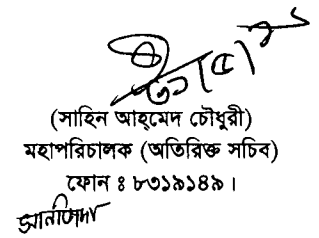 (সাহিন আহ্‌মেদ চৌধুরী)
মহাপরিচালক (অতিরিক্ত সচিব)
ফোন ঃ ৮৩১৯১৪৯।